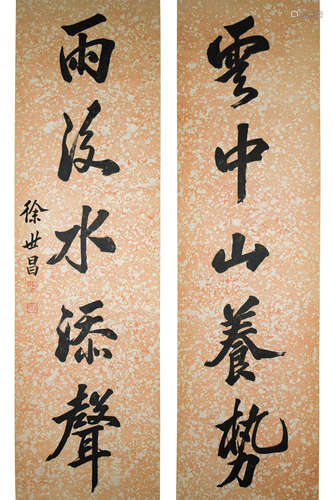 雲中山養勢
雨後水添聲
徐世昌